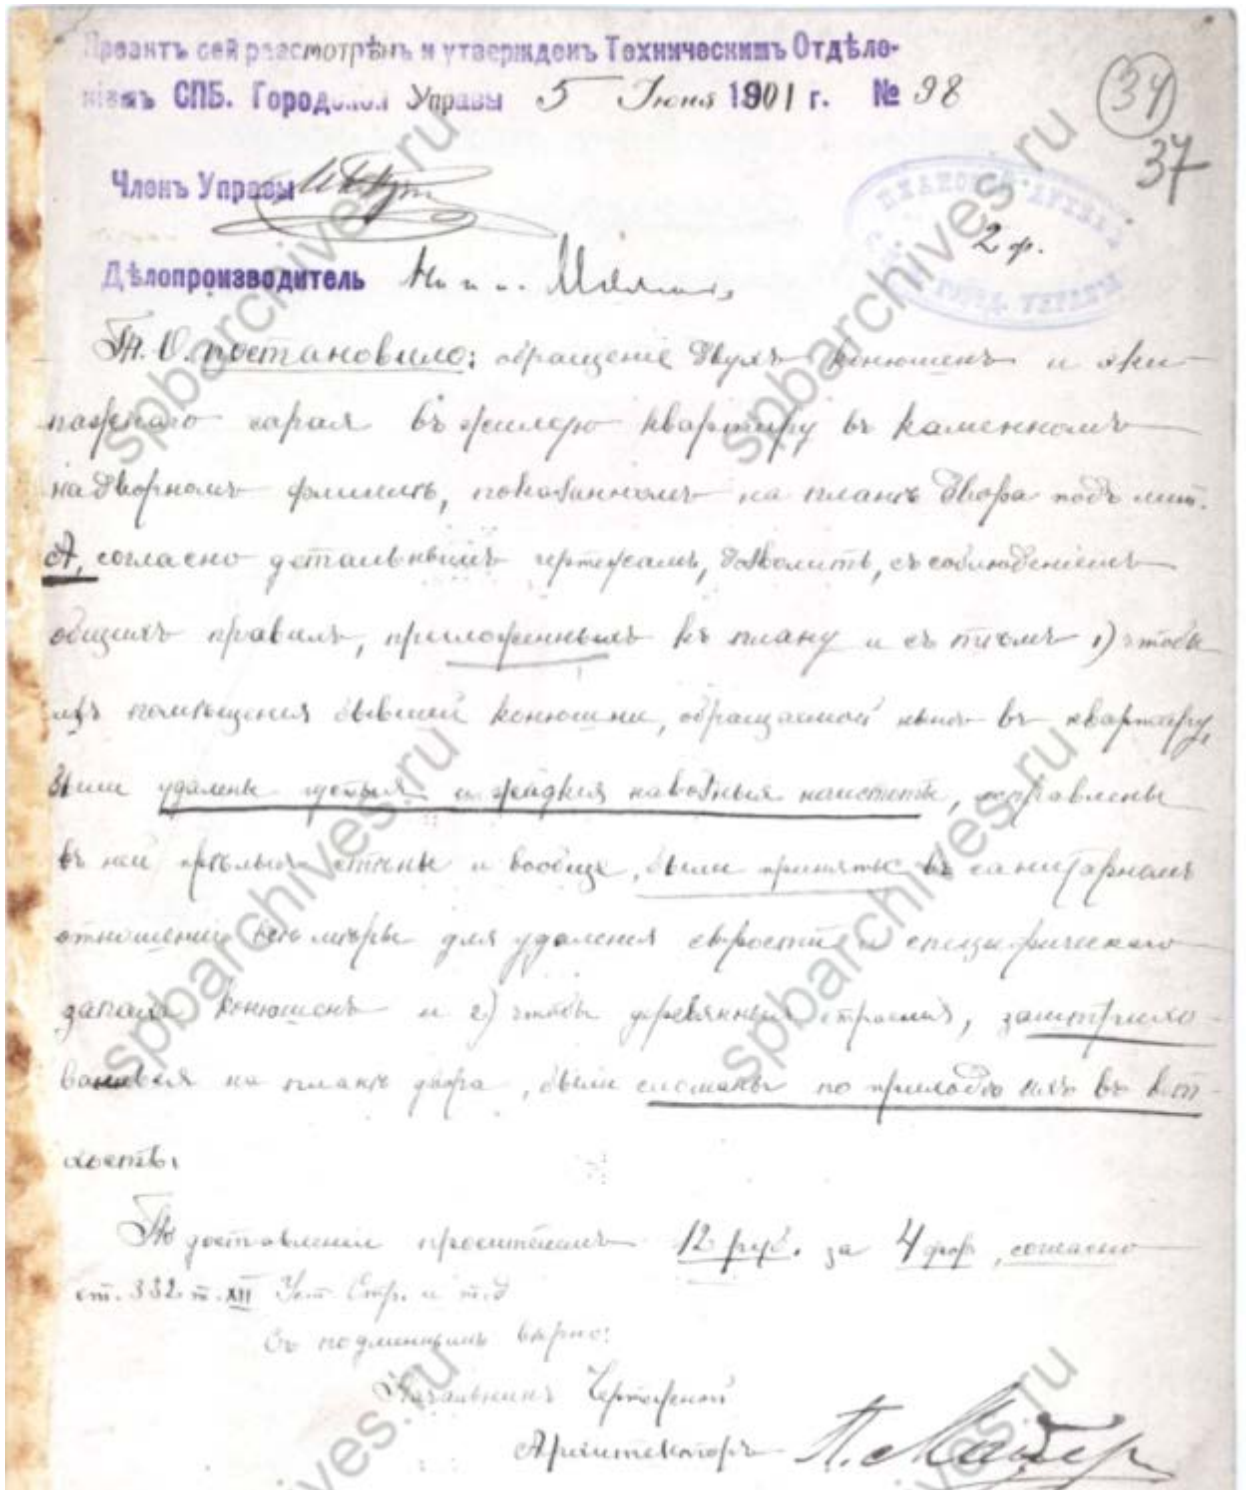 Проектъ сей разсмотрѣнъ и утвержденъ Техническимъ Отдѣле-
ніемъ СПБ. Городской Управы 5 Іюня 1901 г. № 98
34
37
Членъ Управы
ПЛАНОВЫЙ АРХИВЪ
ГОРОД. УПРАВЫ
2 р.
Дѣлопроизводитель
Т. О. постановило: обращеніе двухъ конюшенъ и эки-
пажнаго сарая въ жилую квартиру въ каменномъ
надворномъ флигелѣ, показанномъ на планѣ двора подъ лит.
А, согласно детальнымъ чертежамъ, дозволить, съ соблюденіемъ
общихъ правилъ, приложенныхъ къ плану и съ тѣмъ 1) чтобы
изъ помѣщенія бывшей конюшни, обращаемой нынѣ въ квартиру,
были удалены густыя и жидкія навозныя нечистоты, исправлены
въ ней прѣлыя стѣны и вообще, были приняты въ санитарномъ
отношеніи всѣ мѣры для удаленія сырости и специфическаго
запаха конюшенъ и 2) чтобы деревянныя строенія, заштрихо-
ванныя на планѣ двора, были сломаны по приходѣ ихъ въ вет-
хость.
По доставленіи просителемъ 12 руб. за 4 фор, согласно
ст. 332 т. XII Уст. Стр. и т. д
Съ подлиннымъ вѣрно:
Начальникъ Чертежной
Архитекторъ П. Мазер
spbarchives.ru
spbarchives.ru
spbarchives.ru
spbarchives.ru
spbarchives.ru
spbarchives.ru